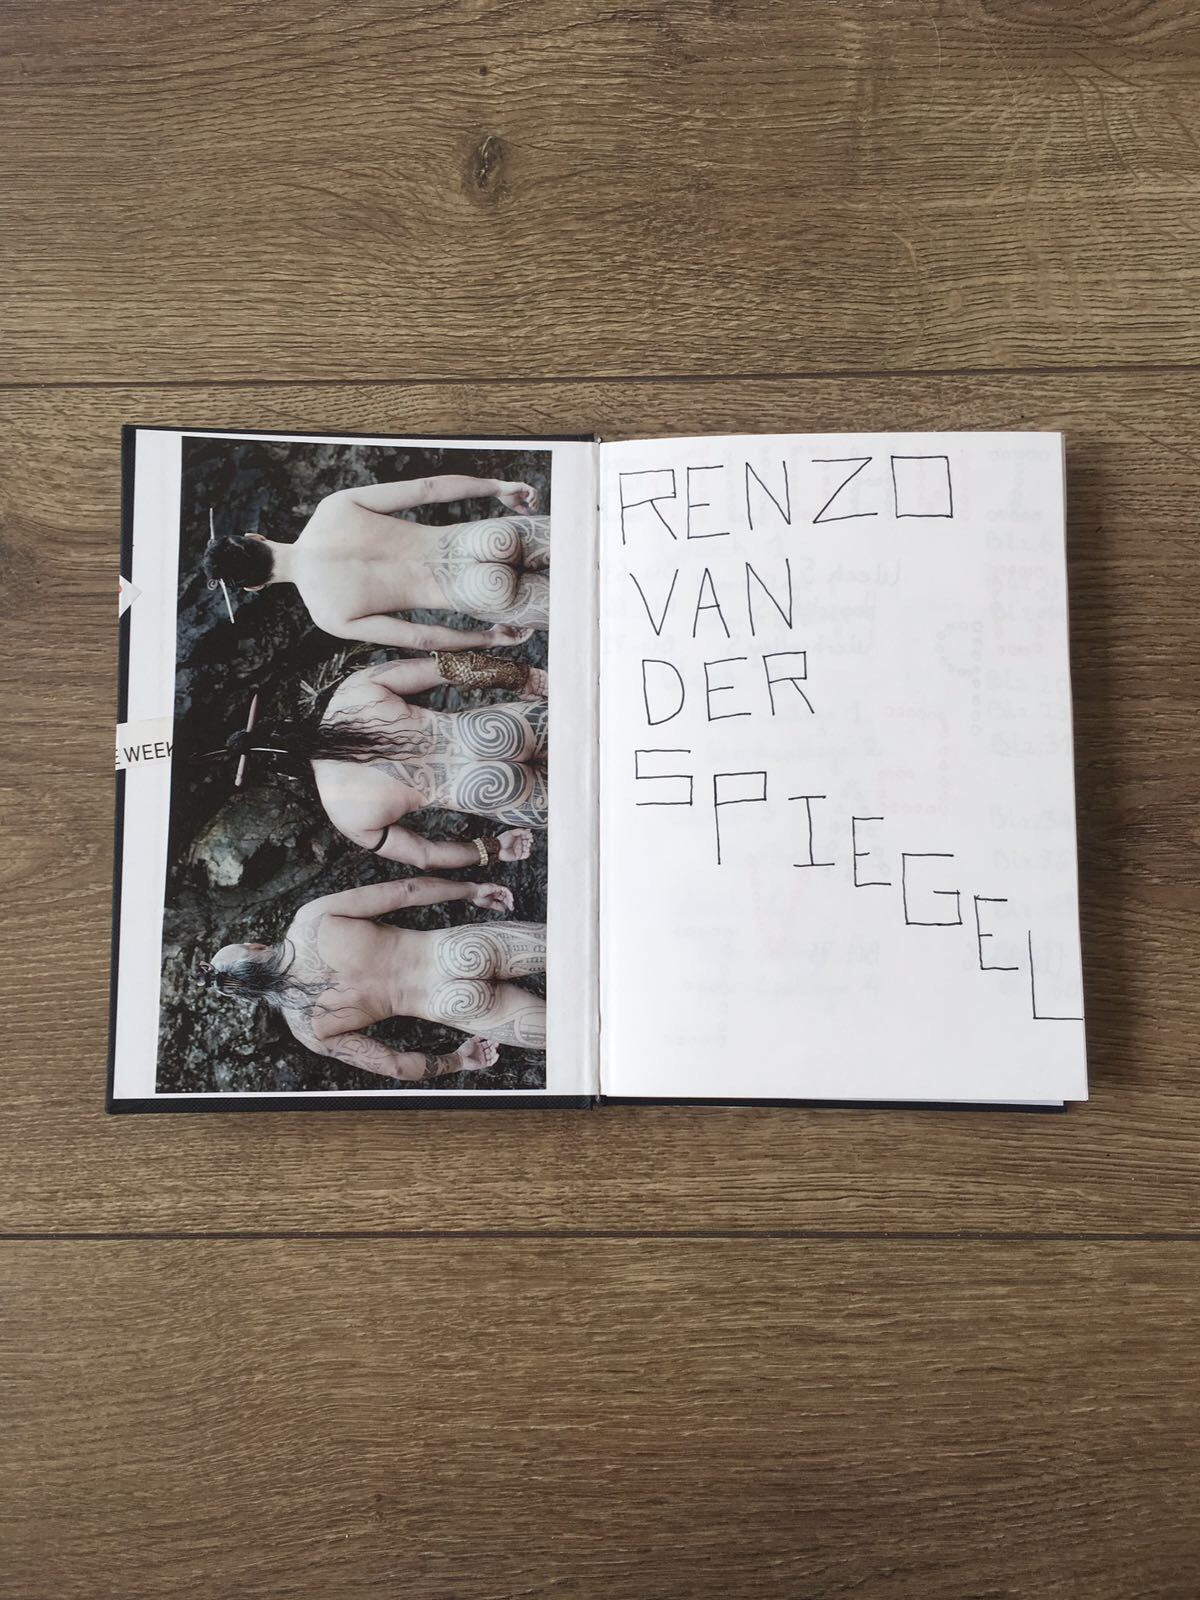 E WEEK
RENZO
VAN
DER
SPIEGEL